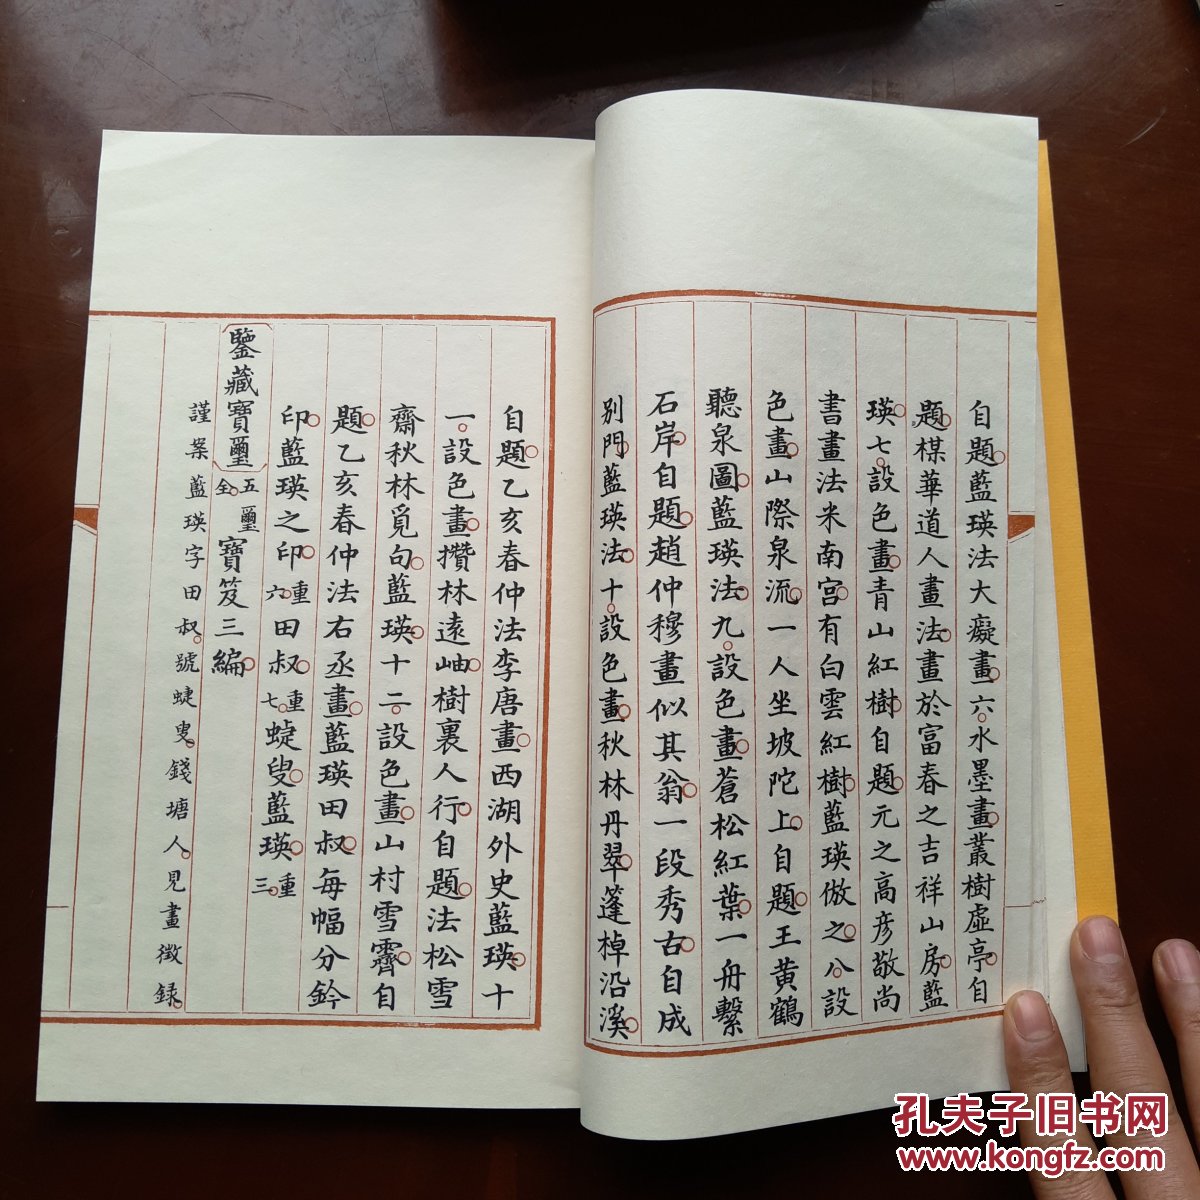 自題藍瑛法大癡畫六水墨畫叢樹虛亭自
題楳華道人畫法畫於富春之吉祥山房藍
瑛七設色畫青山紅樹自題元之高彦敬尚
書畫法米南宮有白雲紅樹藍瑛倣之八設
色畫山際泉流一人坐坡陀上自題王黃鶴
聽泉圖藍瑛法九設色畫蒼松紅葉一舟繫
石岸自題趙仲穆畫似其翁一段秀古自成
別門藍瑛法十設色畫秋林丹翠篷棹沿溪
自題乙亥春仲法李唐畫西湖外史藍瑛十
一設色畫攢林遠岫樹裏人行自題法松雪
齋秋林覓句藍瑛十二設色畫山村雪霽自
題乙亥春仲法右丞畫藍瑛田叔每幅分鈐
印藍瑛之印重六田叔重七蜨叟藍瑛重三
鑒藏寶璽五璽全寶笈三編
謹案藍瑛字田叔號蜨叟錢塘人見畫徵録
孔夫子旧书网
www.kongfz.com